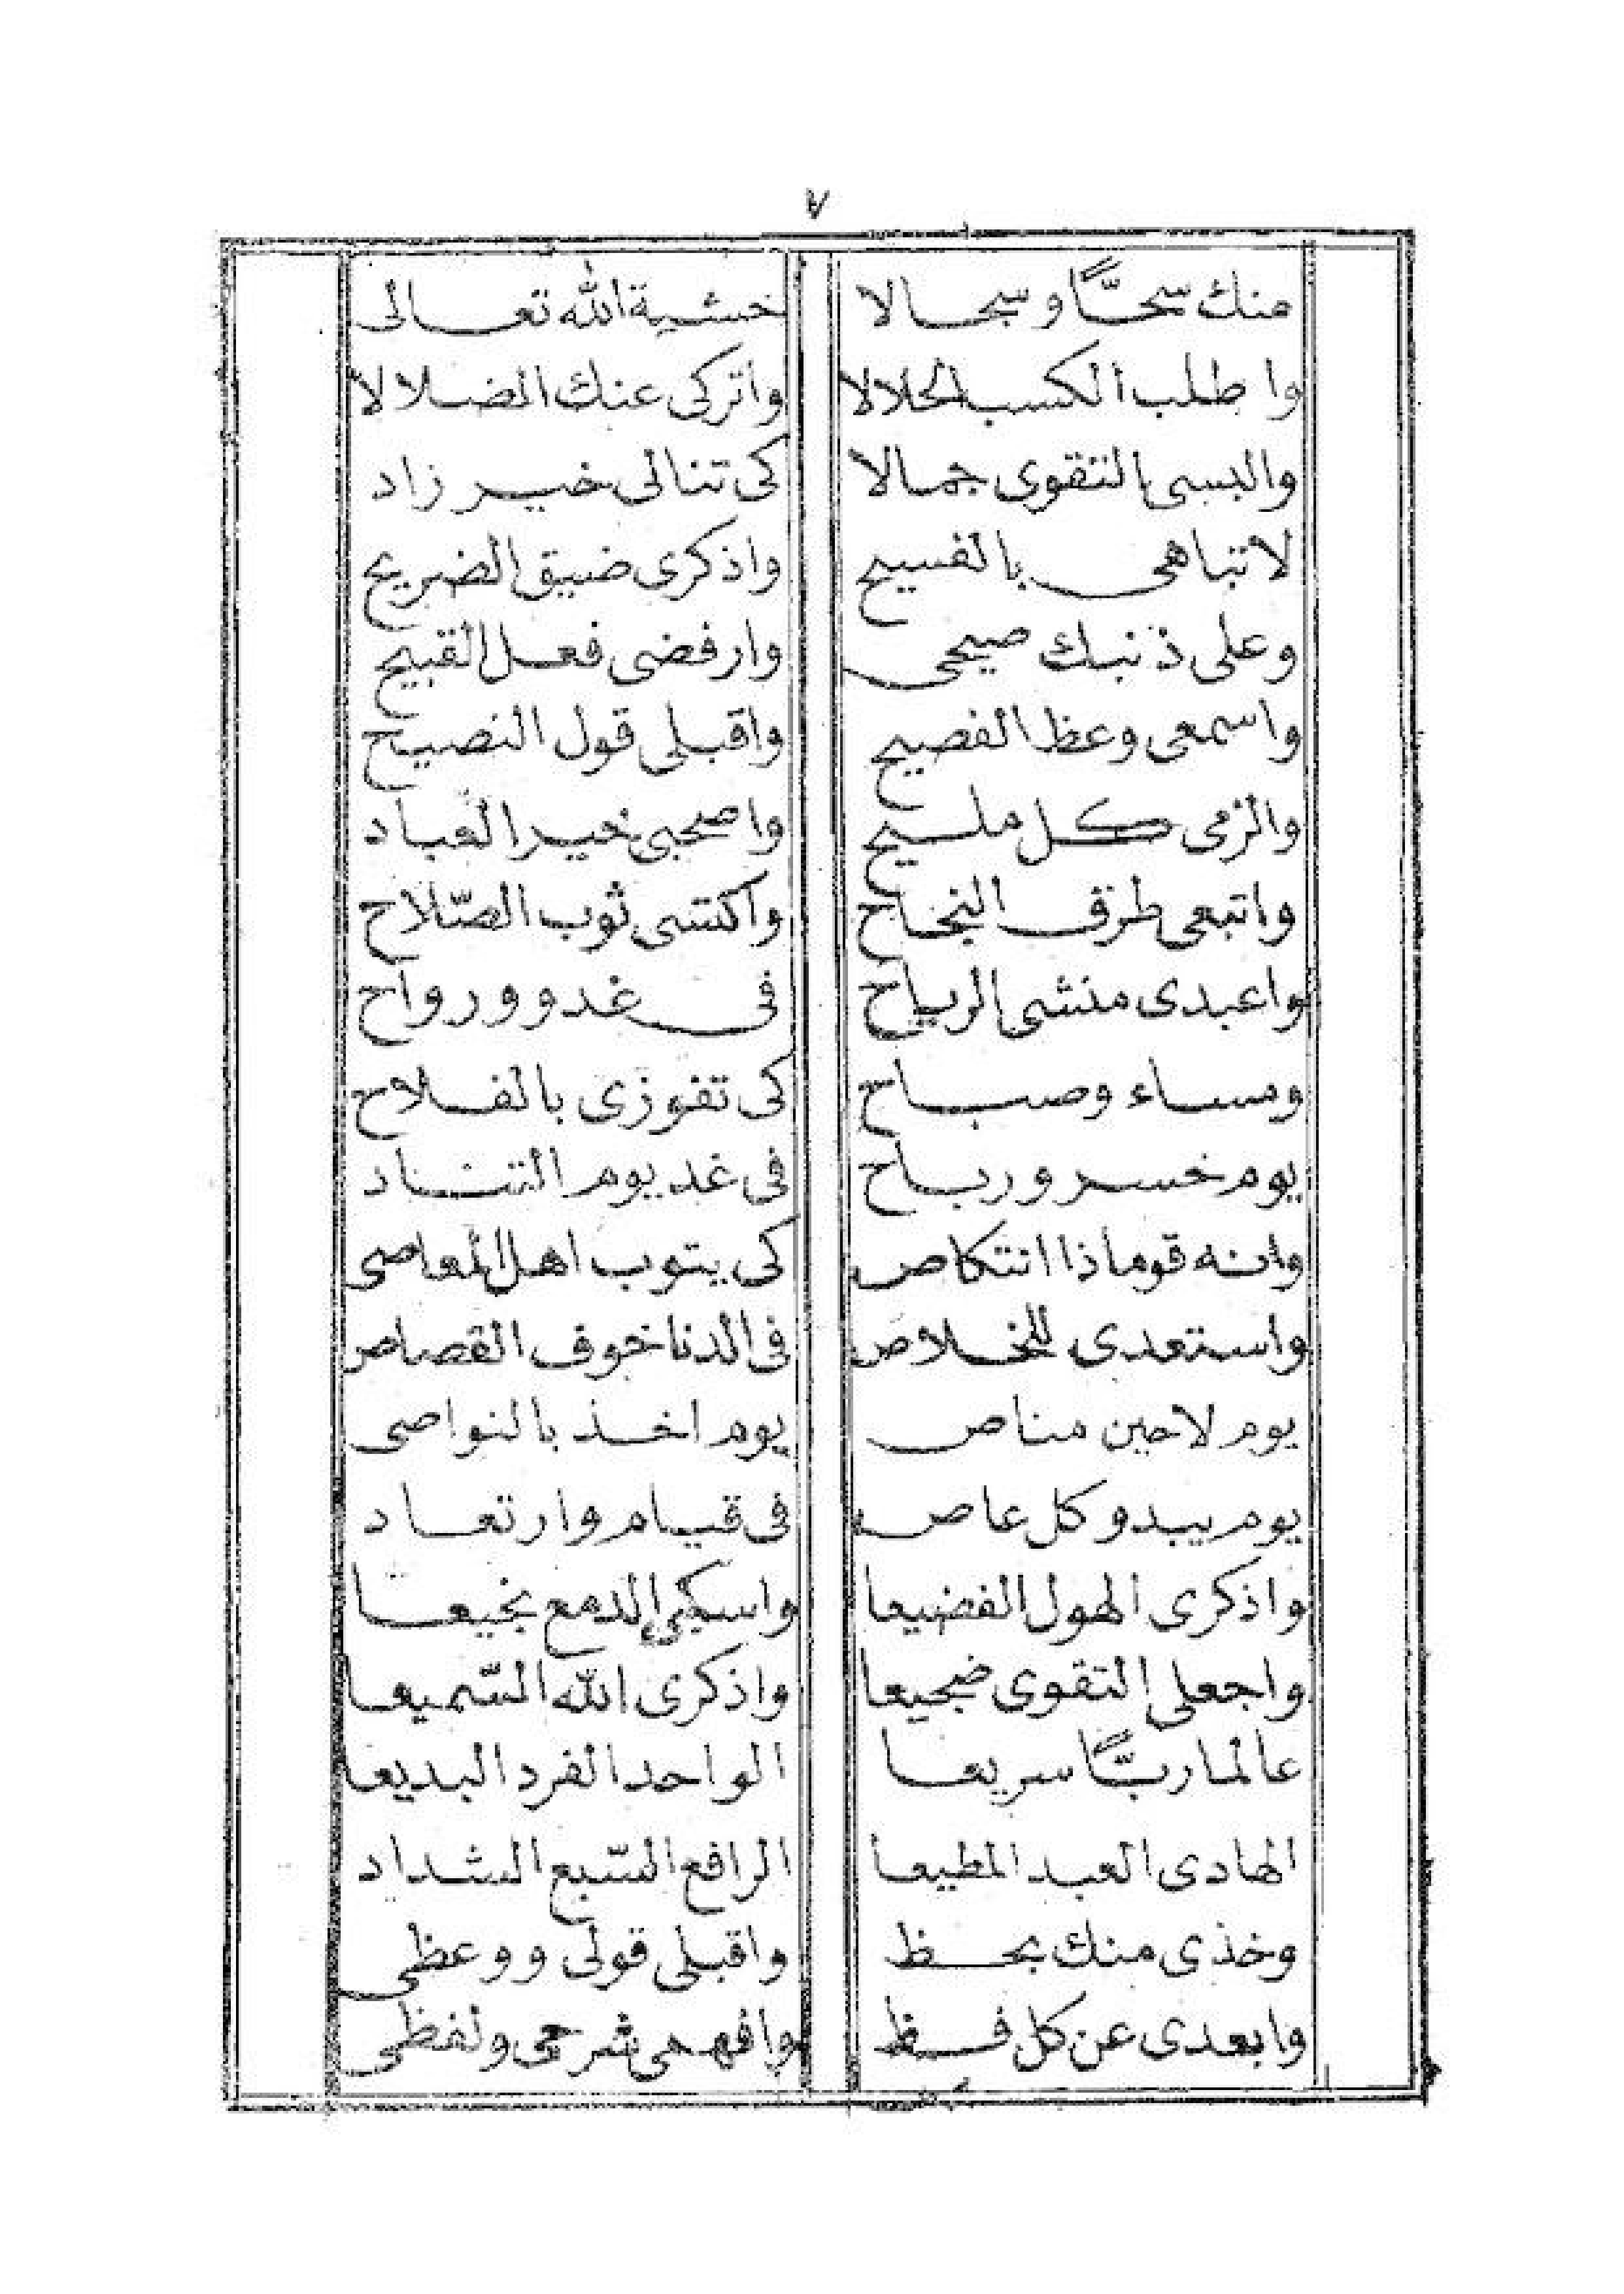 ٧
منك سحًّا وسجالا خشية الله تعالى
واطلب الكسب الحلالا واتركى عنك الضلالا
والبسى التقوى جمالا كى تنالى خير زاد
لاتباهى بالفسيح واذكرى ضيق الضريح
وعلى ذنبك صيحى وارفضى فعل القبيح
واسمعى وعظ الفصيح واقبلى قول النصيح
والزمى كل مليح واصحبى خير العباد
واتبعى طرق النجاح واكتسى ثوب الصّلاح
واعبدى منشى الرياح فى غدو ورواح
ومساء وصباح كى تفوزى بالفلاح
يوم خسر ورباح فى غد يوم التناد
وانه قوما ذا انتكاص كى يتوب اهل المعاصى
واستعدى للخلاص فى الدنا خوف القصاص
يوم لاحين مناص يوم اخذ بالنواصى
يوم يبدو كل عاص فى قيام وارتعاد
واذكرى الهول الفضيعا واسكبى الدمع نجيعا
واجعلى التقوى ضجيعا واذكرى الله السّميعا
عالما ربًّا سريعا الواحد الفرد البديعا
الهادى العبد المطيعا الرافع السّبع الشداد
وخذى منك بحظ واقبلى قولى ووعظى
وابعدى عن كل فظ وافهمى شرحى ولفظى